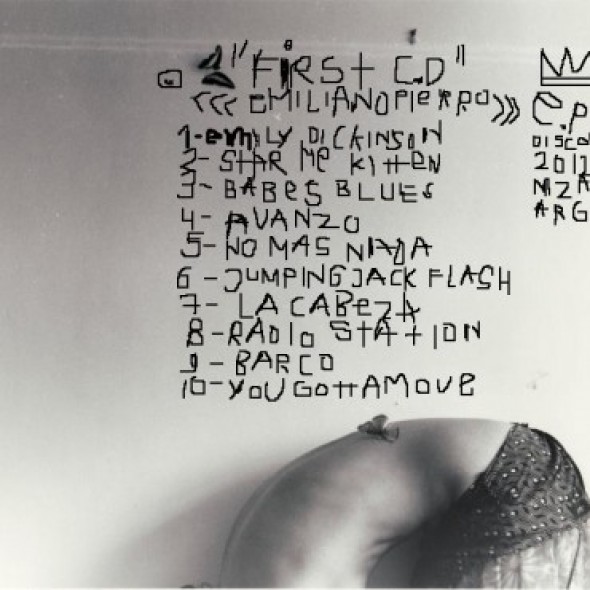 "FIRST C.D"
<<< EMILIANO PIERRO >>
1- emILY DICKINSON
2- STAR ME KITTEN
3- BABES BLUES
4- AVANZO
5- NO MAS NADA
6 - JUMPING JACK FLASH
7- LA CABEZA
8-RADIO STATION
9 - BARCO
10-YOU GOTTA MOVE
E.P
2012
MZA
ARG